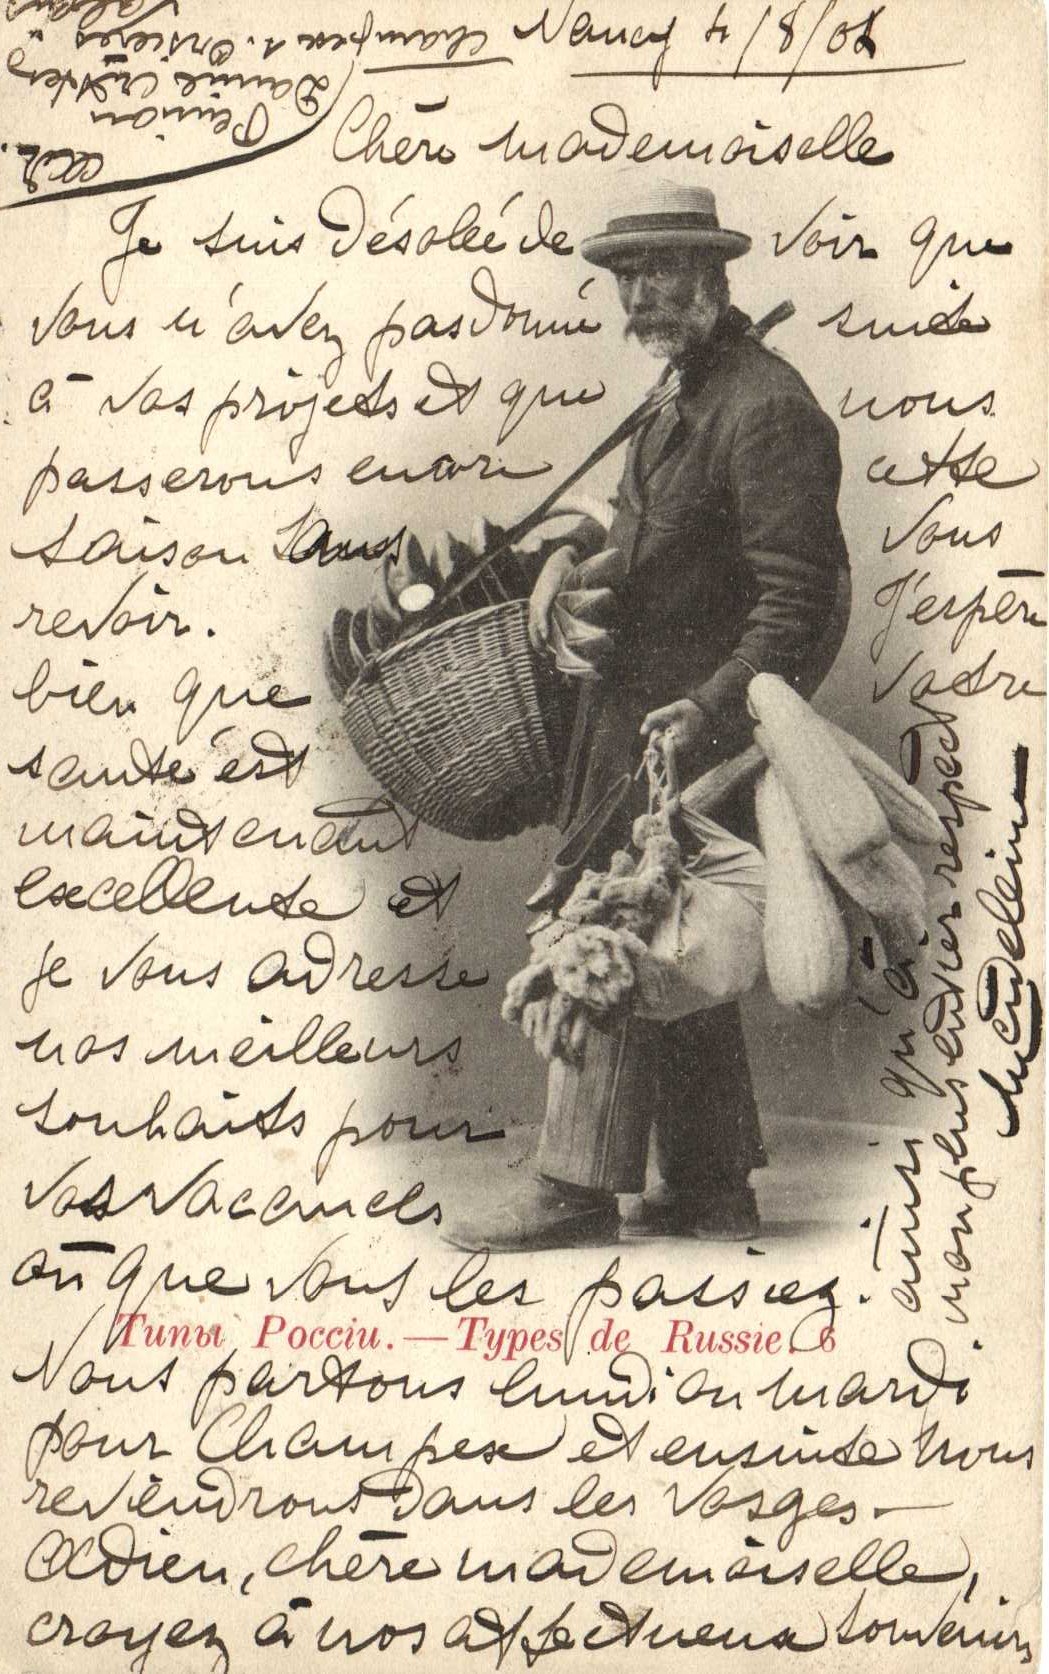 Nancy 4/8/02
Chère mademoiselle
Je suis désolée de voir que
vous n'avez pas donné suite
à vos projets et que nous
passerons encore cette
saison sans vous
revoir. J'espère
bien que votre
santé est
maintenant
excellente et
je vous adresse
nos meilleurs
souhaits pour
vos vacances
où que vous les passiez.
Типы Россіи. — Types de Russie. 6
Nous partons lundi ou mardi
pour Champex et ensuite nous
reviendrons dans les Vosges —
Adieu, chère mademoiselle,
croyez à nos affectueux souvenirs
ainsi qu'à
mon plus entier respect
adr.
Pension
Daniel Crettex
Champex s. Orsières
Valais